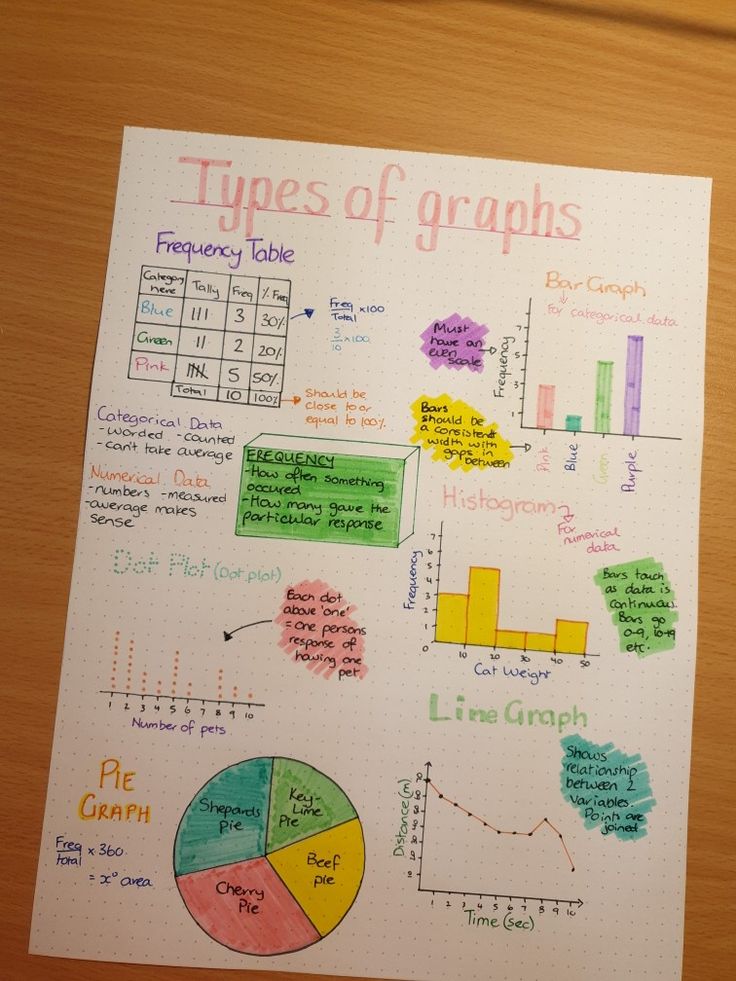 Types of graphs
Frequency Table
Category here Tally Freq % Freq
Blue 3 30%
Green 2 20%
Pink 5 50%
Total 10 100%
Freq
Total ×100
3
10 ×100
Should be
close to or
equal to 100%
Categorical Data
- worded - counted
- can't take average
Numerical Data
- numbers - measured
- average makes
sense
FREQUENCY
- How often something
occured
- How many gave the
particular response
Bar Graph
For categorical data
Must
have an
even
scale
Bars
should be
a consistent
width with
gaps in
between
Frequency
7
5
3
1
Pink
Blue
Green
Purple
Histogram
For
numerical
data
Frequency
7
6
5
4
3
2
1
0
10 20 30 40 50
Cat Weight
Bars touch
as data is
continuous.
Bars go
0-9, 10-19
etc.
Dot Plot (Dot plot)
Each dot
above 'one'
= one persons
response of
having one
pet.
1 2 3 4 5 6 7 8 9 10
Number of pets
Line Graph
Shows
relationship
between 2
variables.
Points are
joined
Distance (m)
70
60
50
40
30
20
10
0
1 2 3 4 5 6 7 8 9 10
Time (sec)
PIE
GRAPH
Freq
total × 360
= x° area
Shepards
Pie
Key-
Lime
Pie
Beef
pie
Cherry
Pie